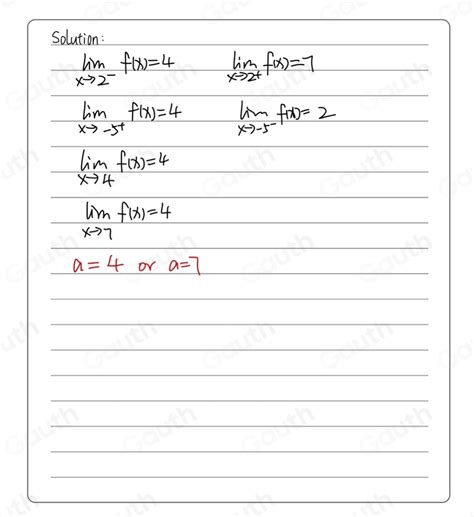 Solution:
lim x→2⁻ f(x)=4 lim x→2⁺ f(x)=7
lim x→-5⁺ f(x)=4 lim x→-5⁻ f(x)=2
lim x→4 f(x)=4
lim x→7 f(x)=4
a=4 or a=7
Gauth